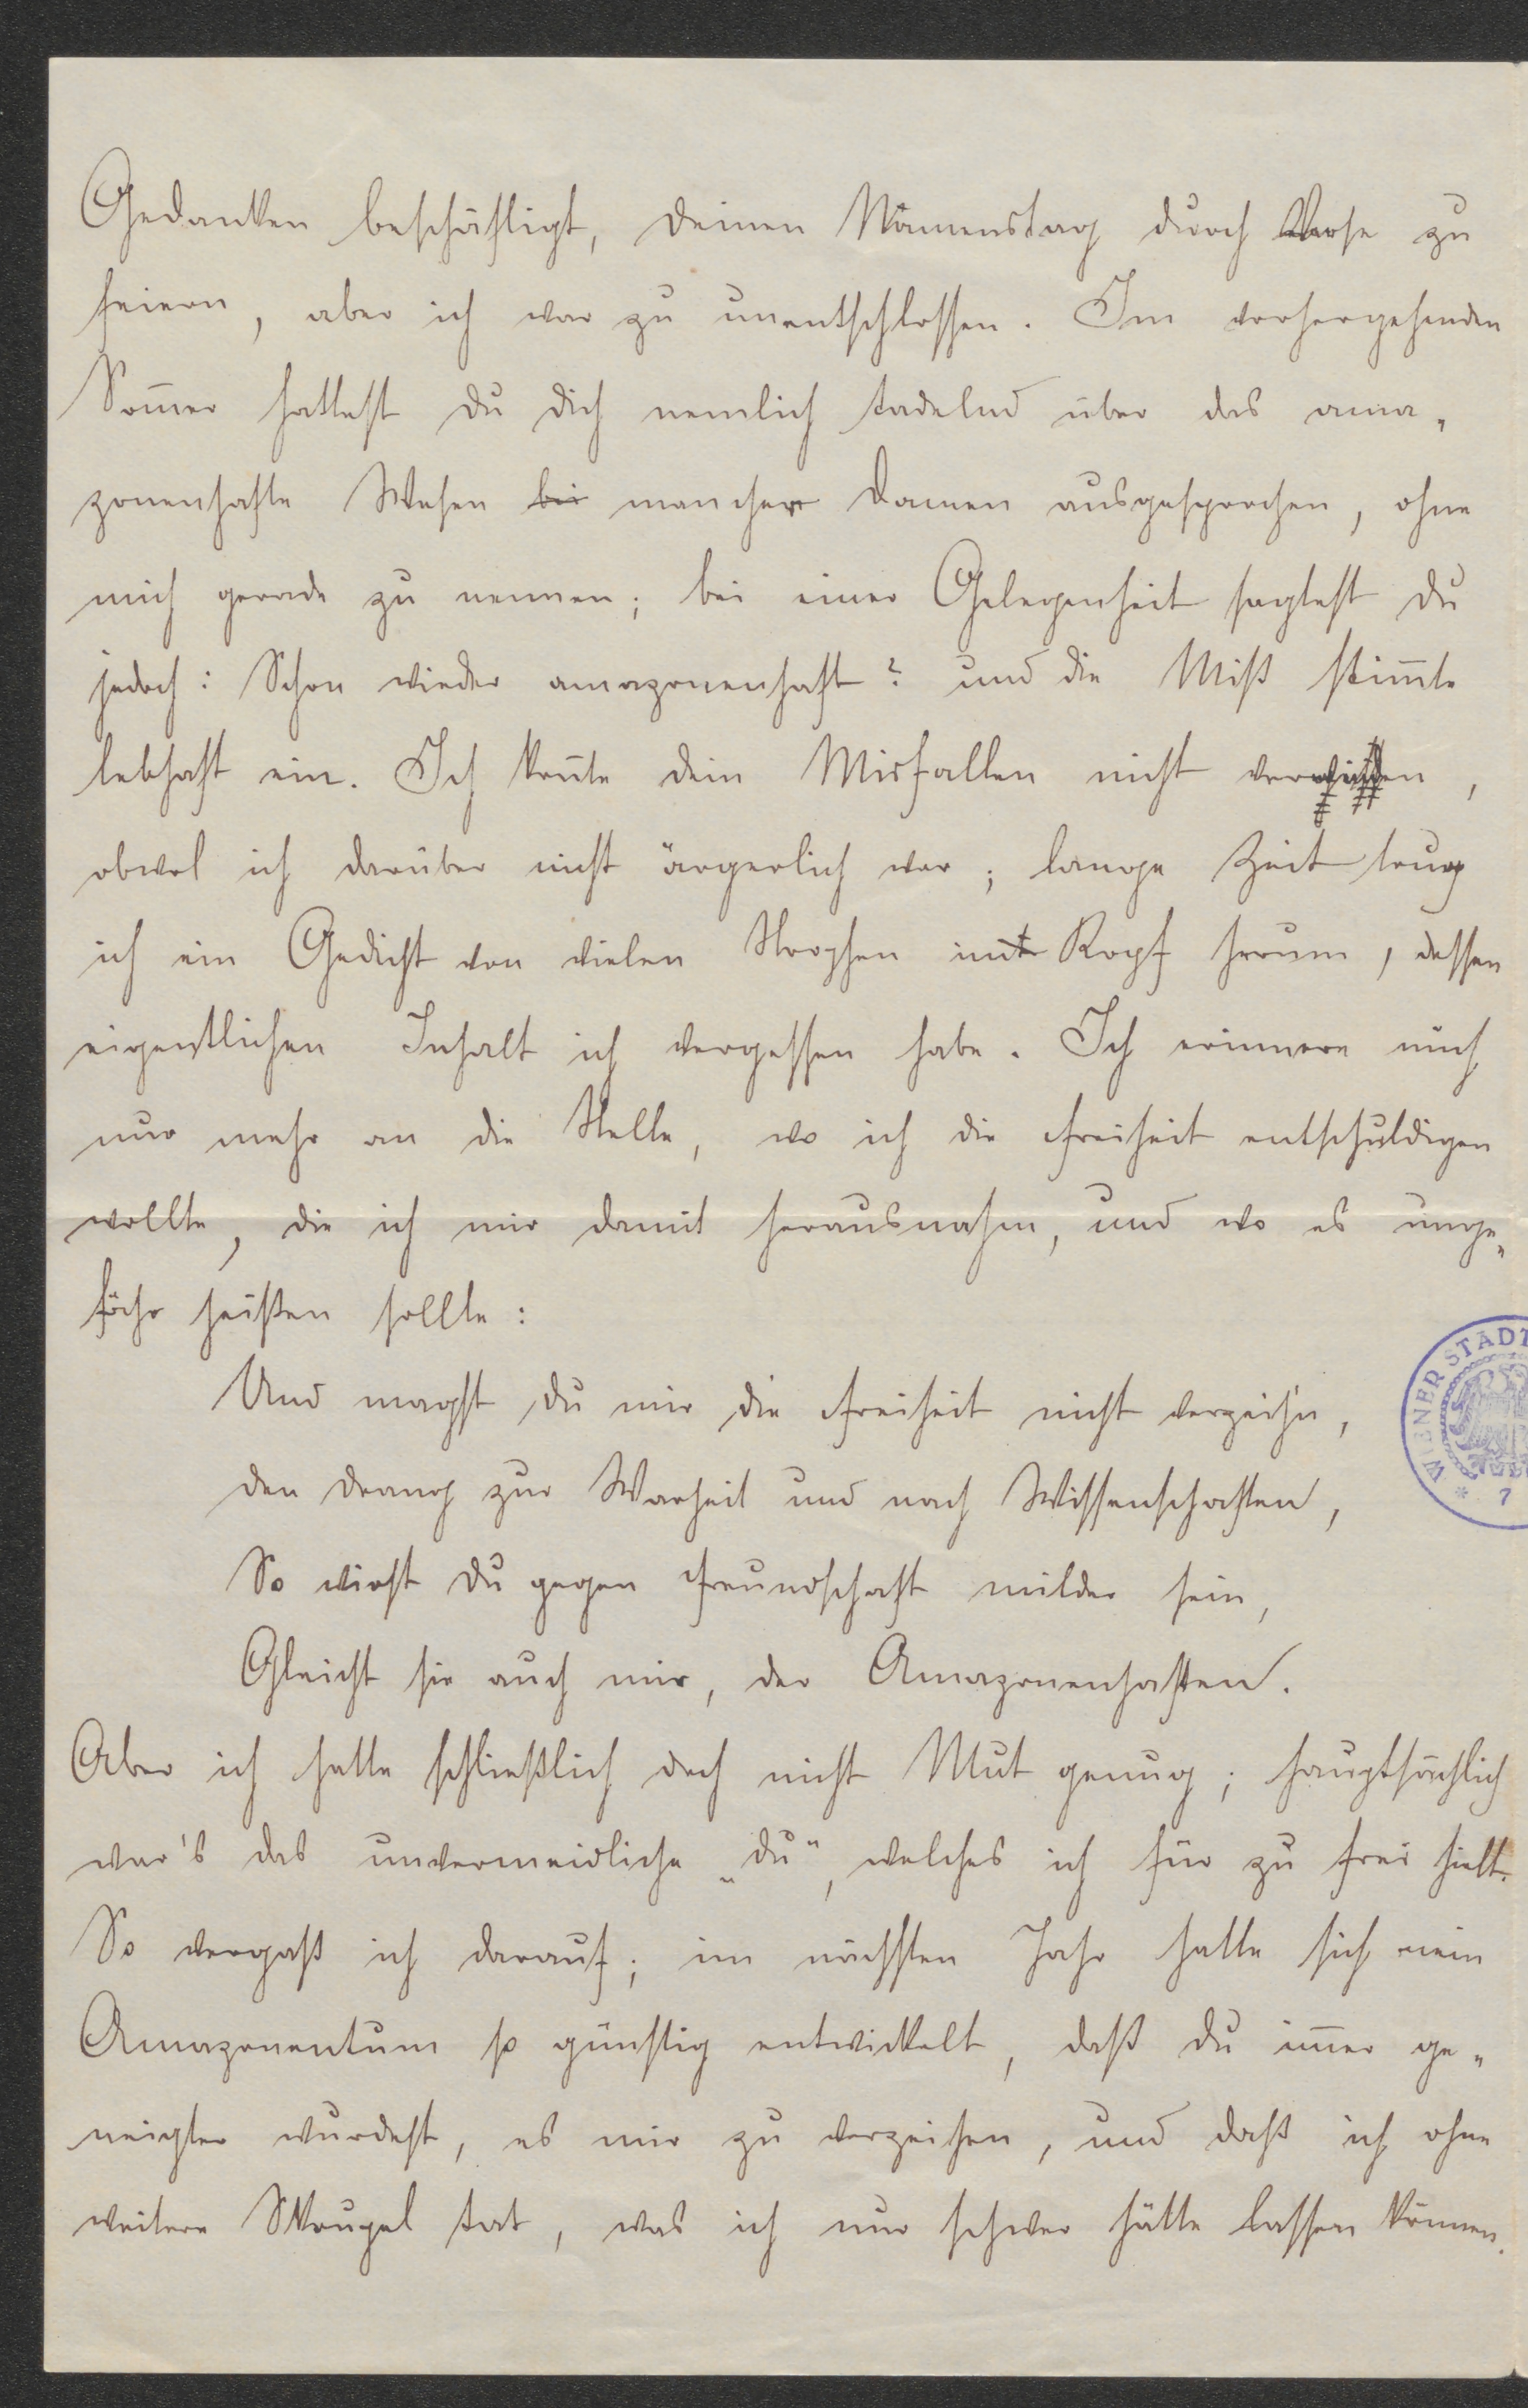 Gedanken beschäftigt, deinen Namenstag durch Verse zu
feiern, aber ich war zu unentschlossen. Im vorhergehenden
Som̄er hattest du dich nemlich tadelnd über das ama„
zonenhafte Wesen bei mancher Damen ausgesprochen, ohne
mich gerade zu nennen; bei einer Gelegenheit sagtest du
jedoch: Schon wieder amazonenhaft? und die Miß stim̄te
lebhaft ein. Ich kon̄te dein Misfallen nicht verwinden,
obwol ich darüber nicht ärgerlich war; lange Zeit trug
ich ein Gedicht von vielen Strophen im Kopf herum, dessen
eigentlichen Inhalt ich vergessen habe. Ich erinnere mich
nur mehr an die Stelle, wo ich die Freiheit entschuldigen
wollte, die ich mir damit herausnahm, und wo es unge„
fähr heißen sollte:
Und magst du mir die Freiheit nicht verzeih'n,
Den Drang zur Warheit und nach Wissenschaften,
So wirst du gegen Freundschaft milder sein,
Gleicht sie auch mir, der Amazonenhaften.
Aber ich hatte schließlich doch nicht Mut genug; hauptsächlich
war's das unvermeidliche „du“, welches ich für zu frei hielt.
So vergaß ich darauf; im nächsten Jahr hatte sich mein
Amazonentum so günstig entwickelt, daß du im̄er ge„
neigter wurdest, es mir zu verzeihen, und daß ich ohne
weitere Skrupel tat, was ich nur schwer hätte lassen können.
WIENER STADT
* 7